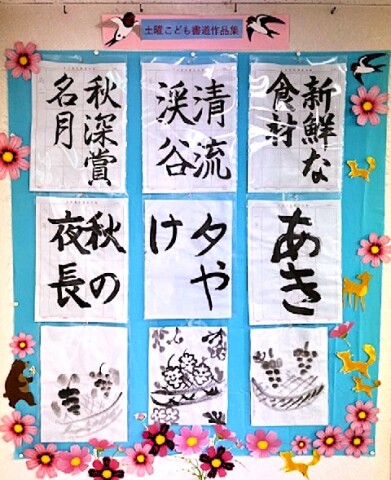 土曜こども書道作品集
新鮮な
食材
清流
渓谷
秋深賞
名月
あき
夕や
け
秋の
夜長